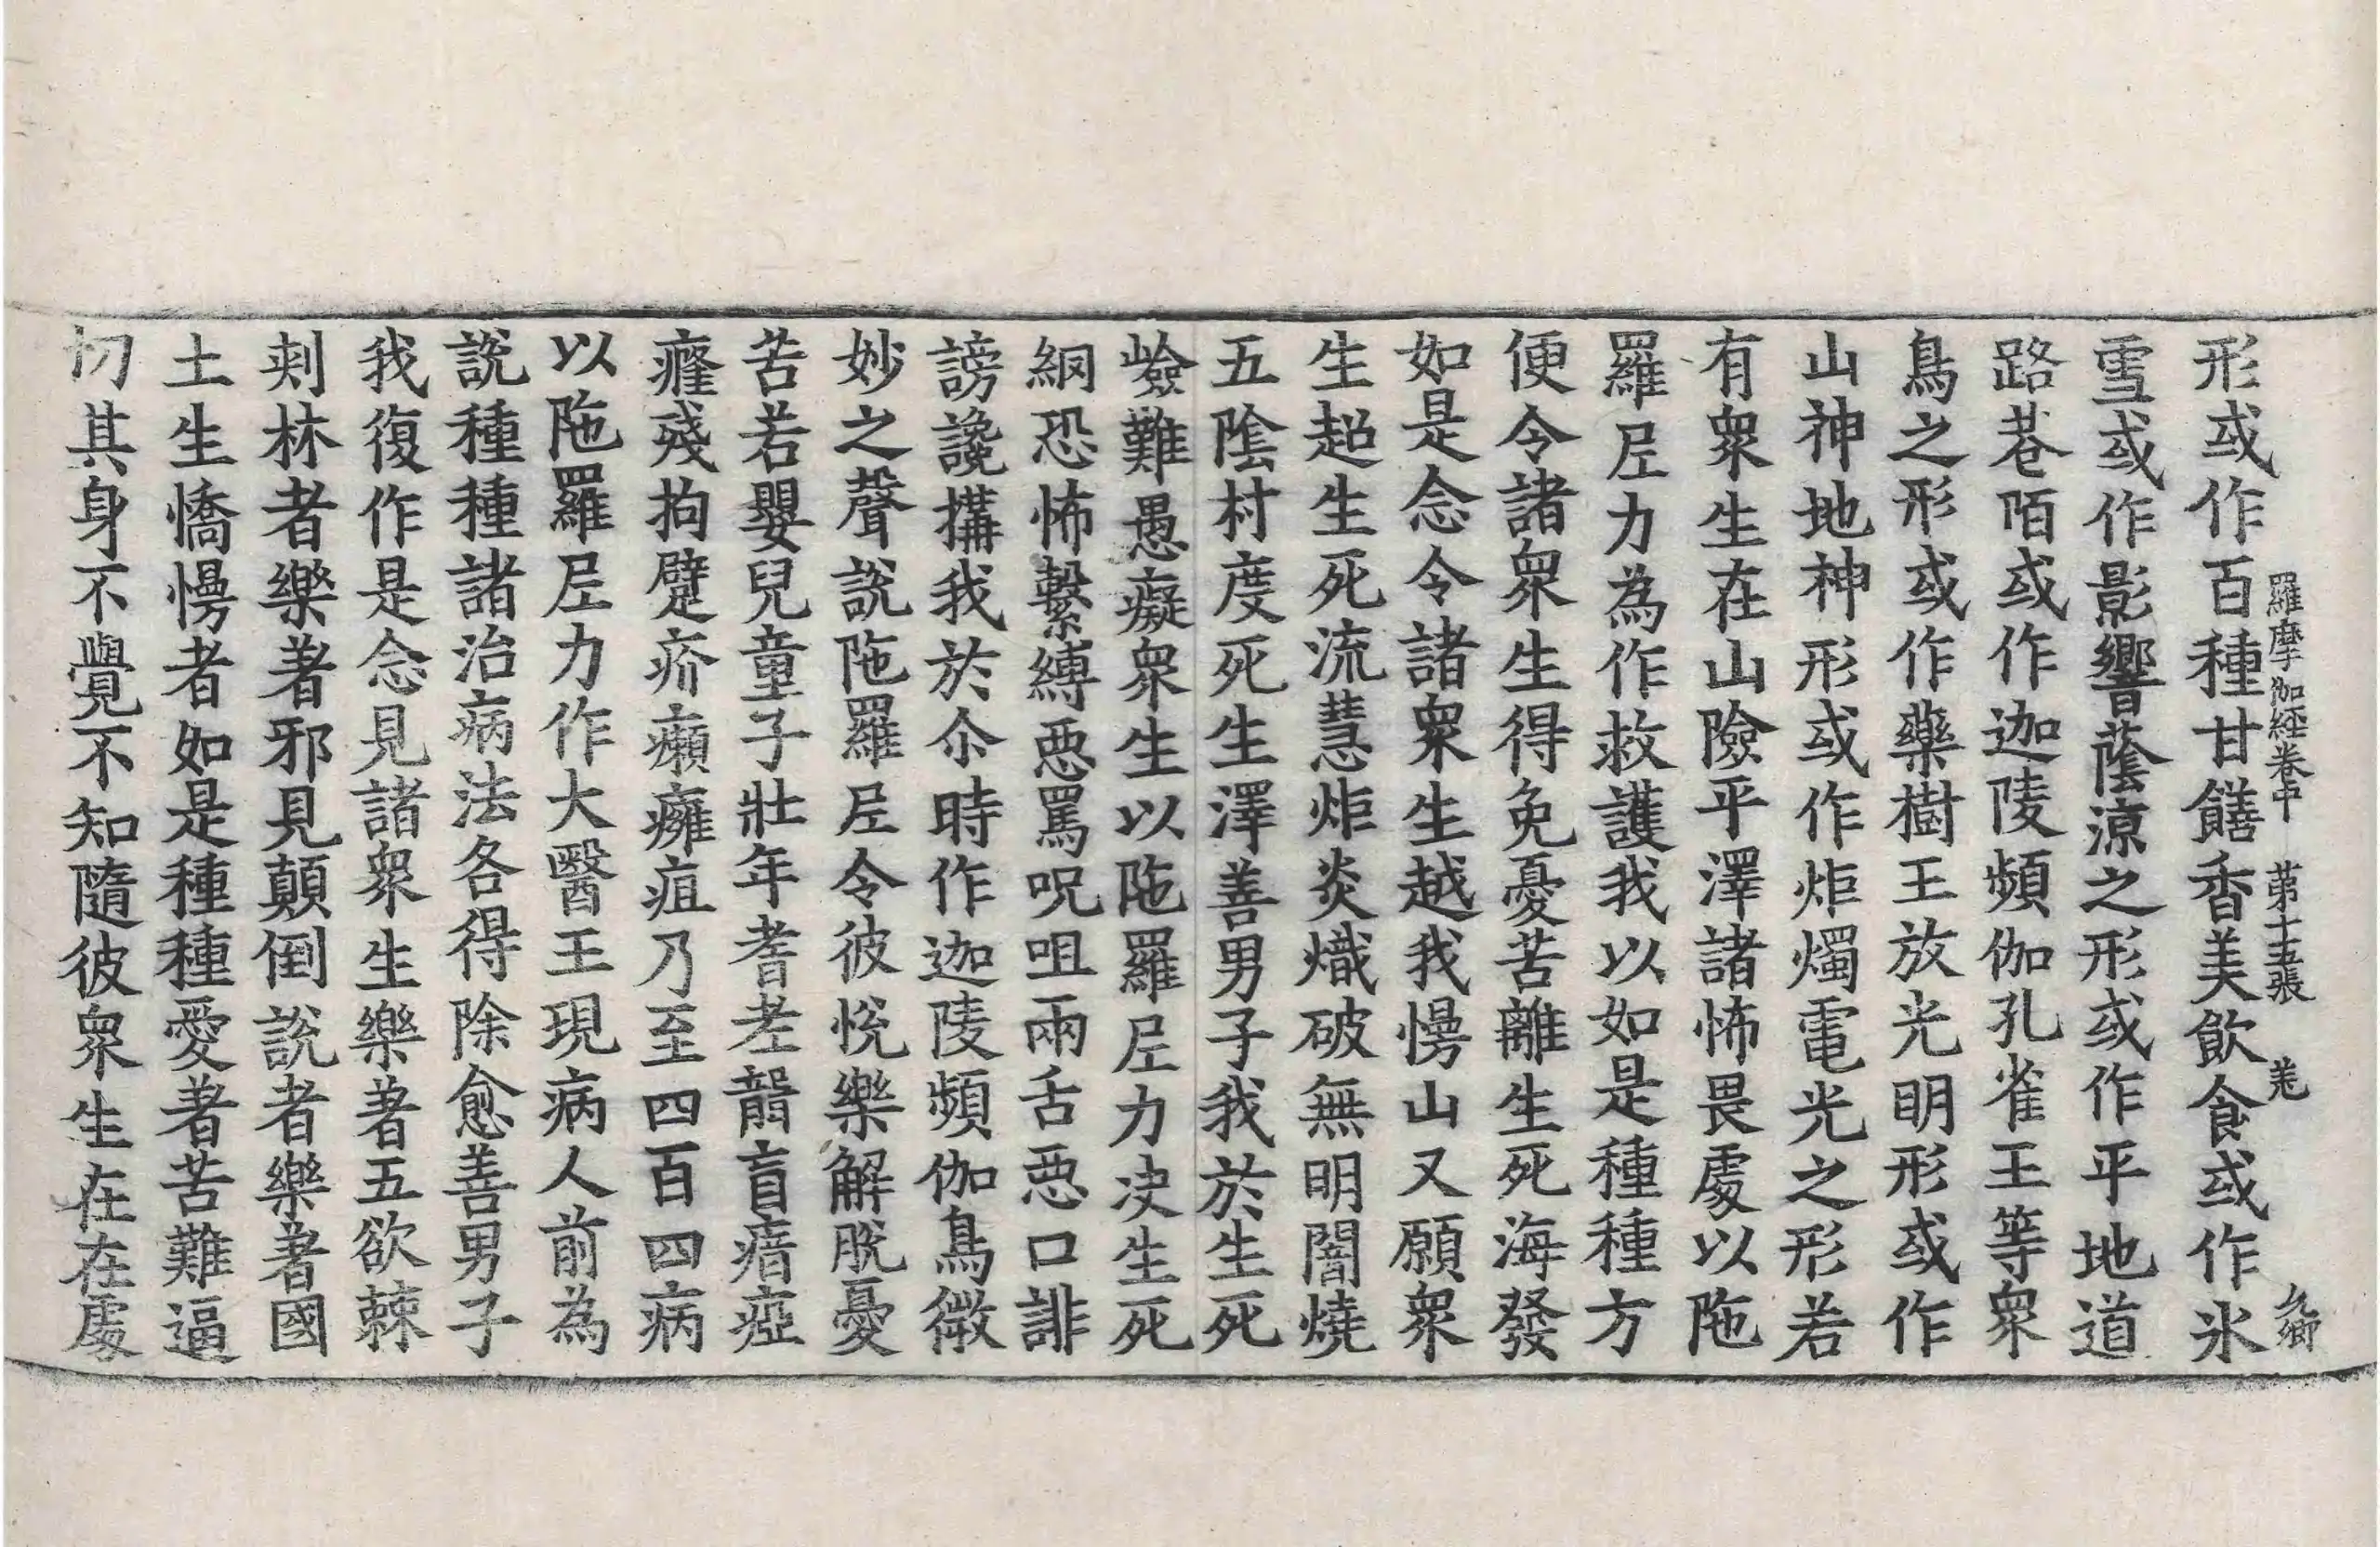 羅摩伽経卷中 第十五張 羌
形或作百種甘饍香美飲食或作氷
雪或作影響蔭涼之形或作平地道
路巷陌或作迦陵頻伽孔雀王等衆
鳥之形或作藥樹王放光明形或作
山神地神形或作炬燭電光之形若
有衆生在山險平澤諸怖畏處以陁
羅尼力為作救護我以如是種種方
便令諸衆生得免憂苦離生死海發
如是念令諸衆生越我慢山又願衆
生超生死流慧炬炎熾破無明闇燒
五陰村度死生澤善男子我於生死
嶮難愚癡衆生以陁羅尼力决生死
網恐怖繫縛惡罵呪咀兩舌惡口誹
謗讒搆我於尒時作迦陵頻伽鳥微
妙之聲說陁羅尼令彼悅樂解脫憂
苦若嬰兒童子壯年耆老聾盲瘖瘂
癃殘拘躄疥癩癰疽乃至四百四病
以陁羅尼力作大醫王現病人前為
說種種諸治病法各得除愈善男子
我復作是念見諸衆生樂著五欲棘
刾林者樂著邪見顛倒說者樂著國
土生憍慢者如是種種愛著苦難逼
切其身不覺不知隨彼衆生在在處